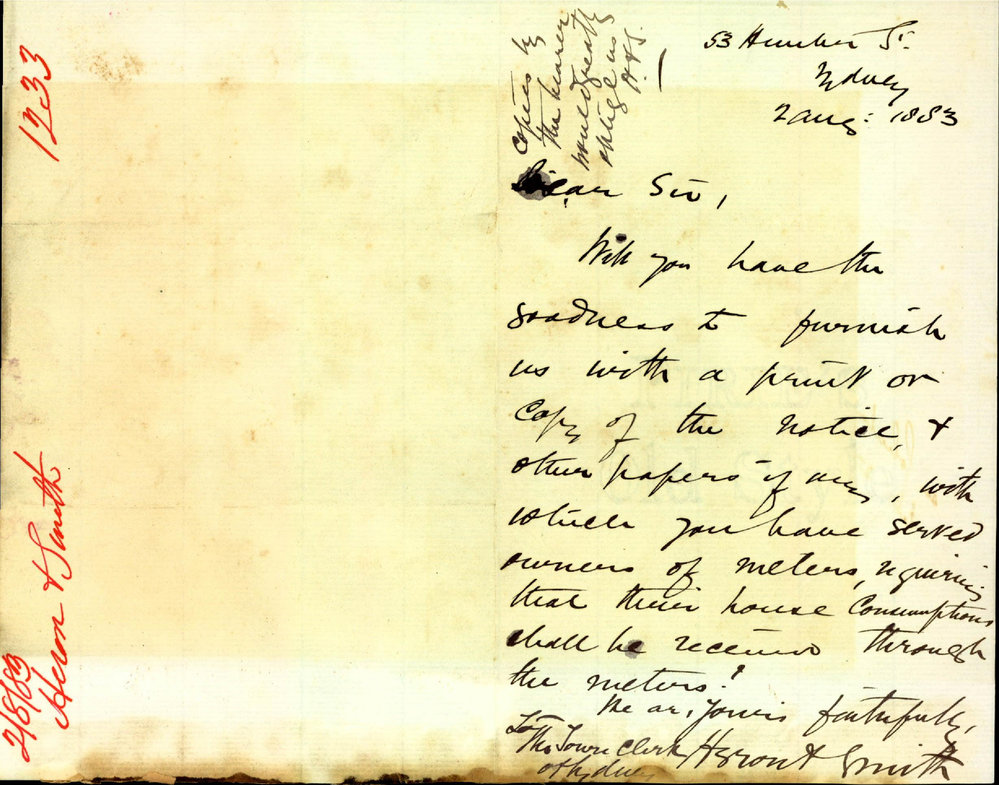 53 Hunter St.
Sydney
2 Aug: 1883
Dear Sir,
Will you have the
goodness to furnish
us with a print or
copy of the notice, &
other papers if any, with
which you have served
owners of meters, requiring
that their house consumptions
shall be received through
the meters?
We are, Yours faithfully,
Heron & Smith
To
The Town Clerk
of Sydney
copies by
the bearer
would greatly
oblige us
H&S
1233
2/8/83
Heron & Smith